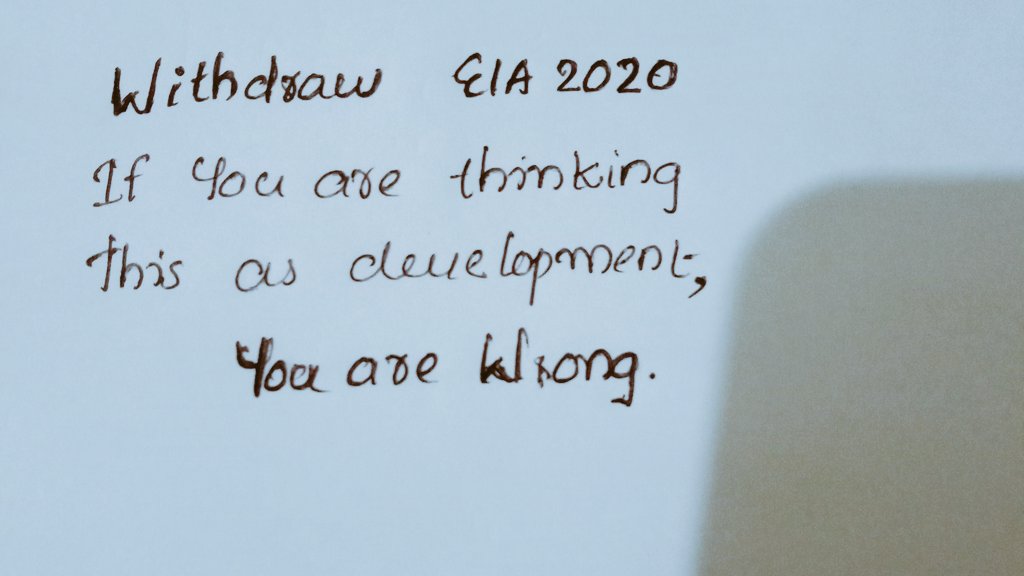 Withdraw EIA 2020
If You are thinking
this as development,
You are Wrong.